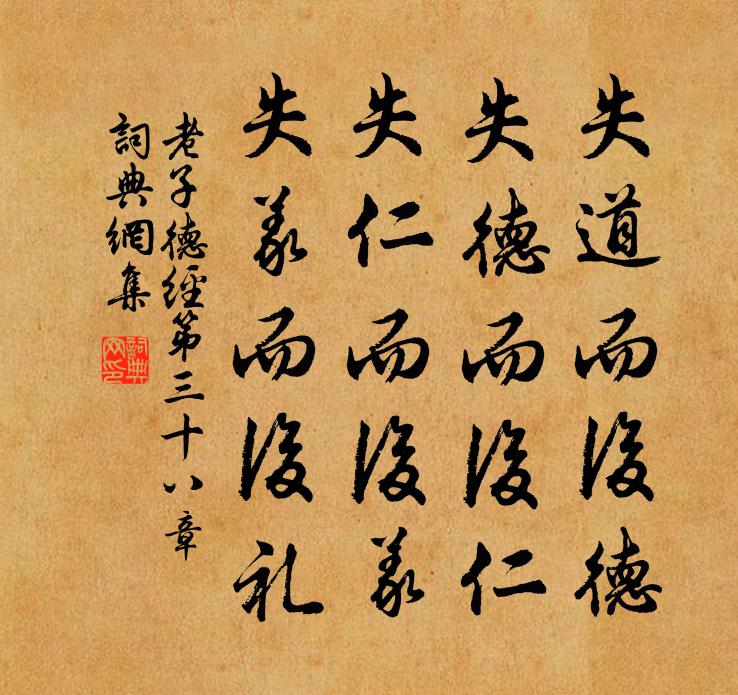 失道而後德
失德而後仁
失仁而後義
失義而後礼
老子德經第三十八章
詞典網集
詞典
网印